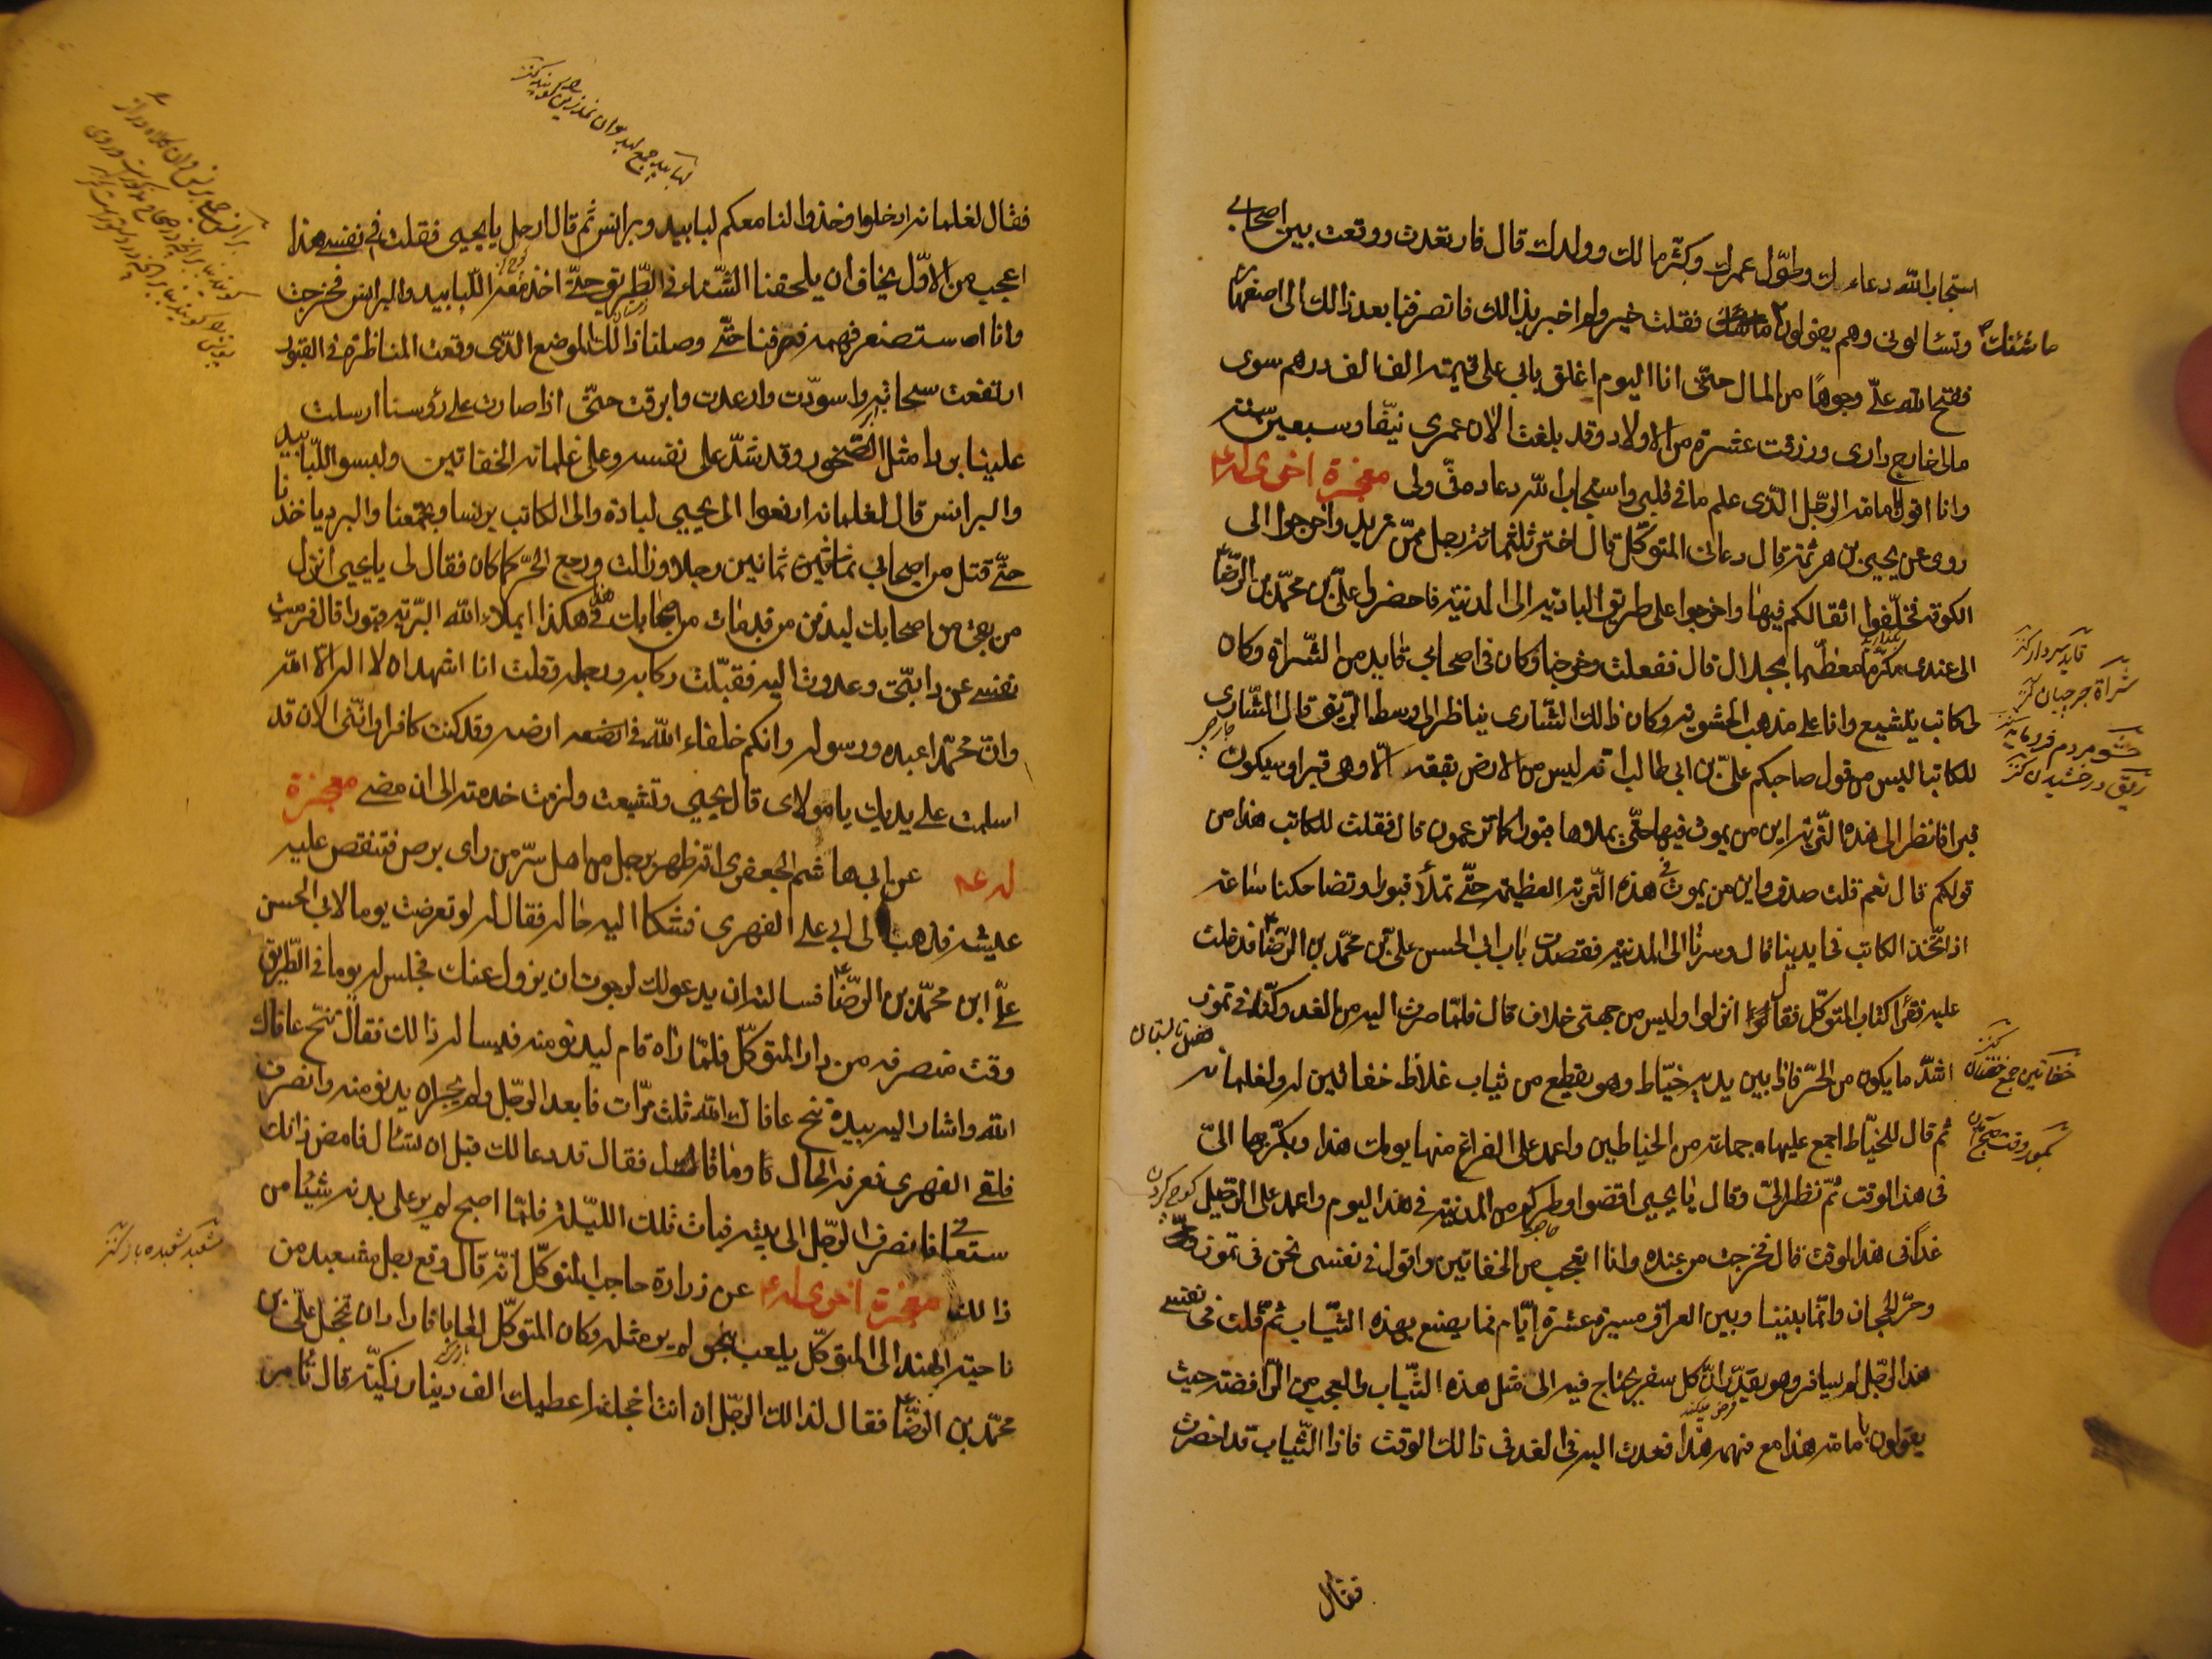 استجاب الله دعاءك وطوّل عمرك وكثّر مالك وولدك قال فارتعدت ووقعت بين اصحابي
ما شئنك وتسالونى وهم يقولون فقلت خير ولم اخبر بذالك فانصرفنا بعد ذالك الى اصفهان
ففتح الله علىّ وجوها من المال حتّى انا اليوم اغلق بابى على قيمته الف الف درهم سوى
مالى خارج دارى ورزقت عشرة من الاولاد وقد بلغت الان عمرى نيّفا وسبعين سنة
وانا اقول بامامة الرجّل الذّى علم ما فى قلبى واستجاب الله دعاءه فىّ ولى معجزة اخرى له ع
روى عن يحيى بن هرثمة قال دعانى المتوكّل قال اختر ثلثمائة رجل ممّن تريد واخرجوا الى
الكوفة فخلّفوا اثقالكم فيها واخرجوا على طريق البادية الى المدينة فاحضروا علىّ بن محمّد بن الرضّا ع
الى عندى مكرّما معظّما مبجلا قال ففعلت وخرجنا وكان فى اصحابى قايد من الشّراة وكان
لى كاتب يتشيع وانا على مذهب الحشوية وكان ذالك الشّارى يناظر الى وسط الطّريق قال الشّارى
للكاتب اليس من قول صاحبكم علىّ بن ابى طالب انه ليس من الارض بقعة الّا وهى قبر او سيكون
قبرا فانظر الى هذه التّربة اين من يموت فيها حتّى يملاها قبورا كما تزعمون قال فقلت للكاتب هذا من
قولكم قال نعم قلت صدق واين من يموت فى هذه التّربة العظيمة حتّى تملأ قبورا وتضاحكنا ساعة
اذ انخذل الكاتب فى ايدينا قال وسرنا الى المدينة فقصدت باب ابى الحسن علىّ بن محمّد بن الرضّا ع فدخلت
عليه فقرأ كتاب المتوكّل فقال انزلوا وليس من جهتى خلاف قال فلمّا صرت اليه من الغد وكنّا فى تموز
اشدّ ما يكون من الحرّ فاذا بين يديه خيّاط وهو يقطع من ثياب غلاظ خفاتين له ولغلمانه
ثم قال للخيّاط اجمع عليها جماعة من الخياطين واعمد على الفراغ منها يومك هذا وبكّر بها الىّ
فى هذا الوقت ثمّ نظر الىّ وقال يا يحيى اقضوا وطركم من المدينة فى هذا اليوم واعمد على الرّحيل
غدا فى هذا الوقت قال فخرجت من عنده وانا اتعجب من الخفاتين واقول فى نفسى نحن فى تموز
وحرّ الحجاز وانّما بيننا وبين العراق مسيرة عشرة ايّام فما يصنع بهذه الثّياب ثمّ قلت فى نفسى
هذا الرّجل لم يسافر وهو يقدّر انّ كل سفر يحتاج فيه الى مثل هذه الثّياب والعجب من الرّافضة حيث
يقولون بامامة هذا مع فهمه هذا فعدت اليه فى الغد فى ذالك الوقت فاذا الثّياب قد احضرت
فقال
قايد سردار كنند
شراة خرجيان كنند
حشو مردم فرومايه
خفاتين جمع خفتان كنند
فقال لغلمانه ادخلوا وخذوا لنا معكم لبابيد وبرانس ثم قال ارحل يا يحيى فقلت فى نفسى هذا
اعجب من الاوّل يخاف ان يلحقنا الشّتاء فى الطّريق حتّى اخذ معه اللّبابيد والبرانس فخرجت
وانا استصغر فهمه فصرفنا حتّى وصلنا ذالك الموضع الذّى وقعت المناظرة فى القبور
ارتفعت سحابة واسودّت وارعدت وابرقت حتّى اذا صارت على رؤسنا ارسلت
علينا بردا مثل الصخور وقد شدّ على نفسه وعلى غلمانه الخفاتين ولبسوا اللّبابيد
والبرانس قال لغلمانه ادفعوا الى يحيى لبادة والى الكاتب برنسا وتجمّعنا والبرد ياخذنا
حتّى قتل من اصحابى ثمانين رجلا وزالت ورجع الحرّ كما كان فقال لى يا يحيى انزل
من بقى من اصحابك ليدفن من قد مات من اصحابك فهكذا يملاء الله البرّية قبورا قال فرميت
نفسى عن دابّتى وعدوت اليه فقبّلت ركابه ورجله وقلت انا اشهد ان لا اله الّا الله
وانّ محمّدا عبده ورسوله وانكم خلفاء الله فى ارضه وقد كنت كافرا وانّنى الان قد
اسلمت على يديك يا مولاى قال يحيى وتشيعت ولزمت خدمته الى ان مضى معجزة
له ع عن ابى هاشم الجعفرى انّه ظهر برجل من اهل سرّ من راى برص فتنغّص عليه
عيشه فذهب الى ابى على الفهرى فشكا اليه حاله فقال له لو تعرضت يوما لابى الحسن
علىّ ابن محمّد بن الرضّا ع فسالته ان يدعو لك لرجوت ان يزول عنك فجلس له يوما فى الطّريق
وقت منصرفه من دار المتوكّل فلمّا راه قام ليدنو منه فيساله ذالك فقال تنحّ عافاك
الله واشار اليه بيده تنح عافاك الله ثلث مرّات فابعد الرّجل ولم يجراه يدنو منه وانصرف
فلقى الفهرى فعرفه الحال وما قال فقال قد دعا لك قبل ان تسئال فامض فانك
ستعافى فانصرف الرّجل الى بيته فبات تلك اللّيلة فلمّا اصبح لم ير على بدنه شيئا من
ذالك معجزة اخرى له ع عن زرارة حاجب المتوكّل انّه قال وقع رجل مشعبد من
ناحية الهند الى المتوكّل يلعب بالحقّ لم ير مثله وكان المتوكّل لعابا فاراد ان يخجل علىّ بن
محمّد بن الرضّا ع فقال لذالك الرّجل ان انت اخجلته اعطيتك الف دينار زكيّة قال تأمر
مشعبد شعبده باز كنند